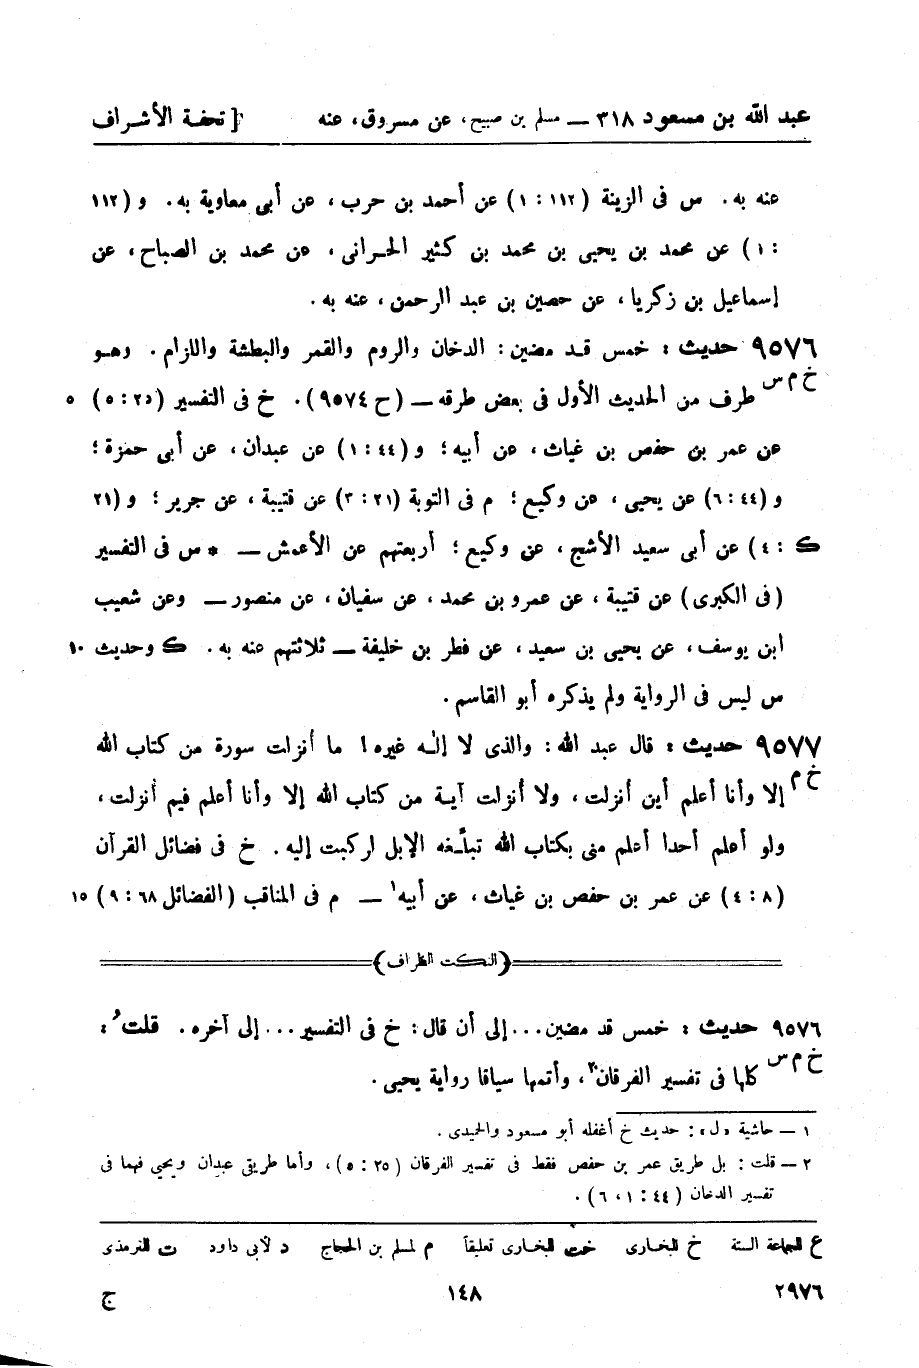 عبد الله بن مسعود ٣١٨ — مسلم بن صبيح، عن مسروق، عنه [ تحفة الأشراف
عنه به. س فى الزينة (١١٢ : ١) عن أحمد بن حرب، عن أبى معاوية به. و (١١٢
: ١) عن محمد بن يحيى بن محمد بن كثير الحرانى، عن محمد بن الصباح، عن
إسماعيل بن زكريا، عن حصين بن عبد الرحمن، عنه به.
٩٥٧٦ حديث : خمس قد مضين: الدخان والروم والقمر والبطشة واللزام. وهو
خ م س طرف من الحديث الأول فى بعض طرقه — (ح ٩٥٧٤). خ فى التفسير (٢٥ : ٥) ٥
عن عمر بن حفص بن غياث، عن أبيه؛ و (٤٤ : ١) عن عبدان، عن أبى حمزة؛
و (٤٤ : ٦) عن يحيى، عن وكيع؛ م فى التوبة (٢١ : ٣) عن قتيبة، عن جرير؛ و (٢١
ك : ٤) عن أبى سعيد الأشج، عن وكيع؛ أربعتهم عن الأعمش — * س فى التفسير
(فى الكبرى) عن قتيبة، عن عمرو بن محمد، عن سفيان، عن منصور — وعن شعيب
ابن يوسف، عن يحيى بن سعيد، عن فطر بن خليفة — ثلاثتهم عنه به. ك وحديث ١٠
س ليس فى الرواية ولم يذكره أبو القاسم.
٩٥٧٧ حديث : قال عبد الله: والذى لا إله غيره! ما أنزلت سورة من كتاب الله
خ م إلا وأنا أعلم أين أنزلت، ولا أنزلت آية من كتاب الله إلا وأنا أعلم فيم أنزلت،
ولو أعلم أحدا أعلم منى بكتاب الله تبلّغه الإبل لركبت إليه. خ فى فضائل القرآن
(٨ : ٤) عن عمر بن حفص بن غياث، عن أبيه١ — م فى المناقب (الفضائل ٦٨ : ٩) ١٥
(النكت الظراف)
٩٥٧٦ حديث : خمس قد مضين... إلى أن قال: خ فى التفسير... إلى آخره. قلت :
خ م س كلها فى تفسير الفرقان٢، وأتمها سياقا رواية يحيى.
١ — حاشية «ل»: حديث خ أغفله أبو مسعود والحميدى.
٢ — قلت: بل طريق عمر بن حفص فقط فى تفسير الفرقان (٢٥ : ٥)، وأما طريقى عبدان ويحيى فهما فى
تفسير الدخان (٤٤ : ١، ٦).
ع للجماعة الستة خ للبخارى خت للبخارى تعليقاً م لمسلم بن الحجاج د لأبى داود ت للترمذى
٢٩٧٦ ١٤٨ ج